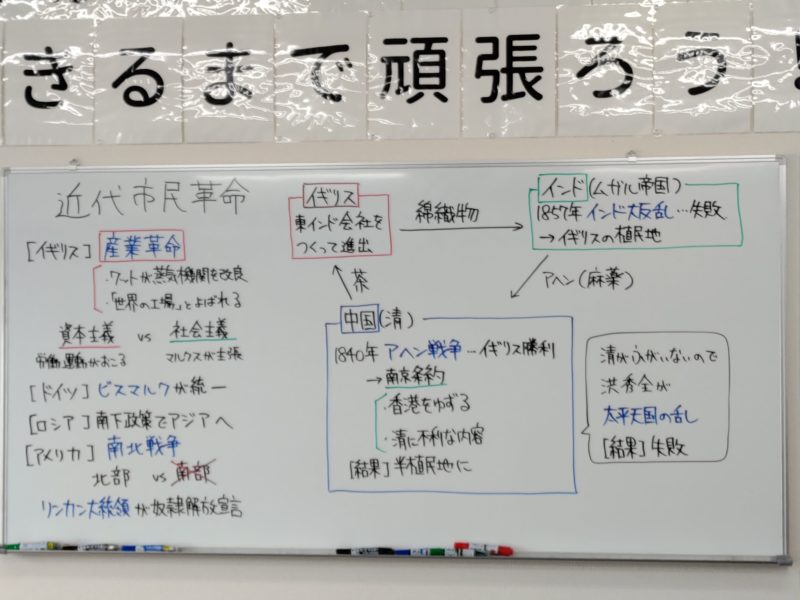 きるまで頑張ろう!
近代市民革命
[イギリス] 産業革命
・ワットが蒸気機関を改良
・「世界の工場」とよばれる
資本主義 vs 社会主義
労働運動がおこる マルクスが主張
[ドイツ] ビスマルクが統一
[ロシア] 南下政策でアジアへ
[アメリカ] 南北戦争
北部 vs 南部
リンカン大統領が奴隷解放宣言
イギリス
東インド会社を
つくって進出
綿織物
インド(ムガル帝国)
1857年 インド大反乱…失敗
→イギリスの植民地
茶
アヘン(麻薬)
中国(清)
1840年 アヘン戦争…イギリス勝利
→南京条約
・香港をゆずる
・清に不利な内容
[結果] 半植民地に
清がふがいないので
洪秀全が
太平天国の乱
[結果] 失敗